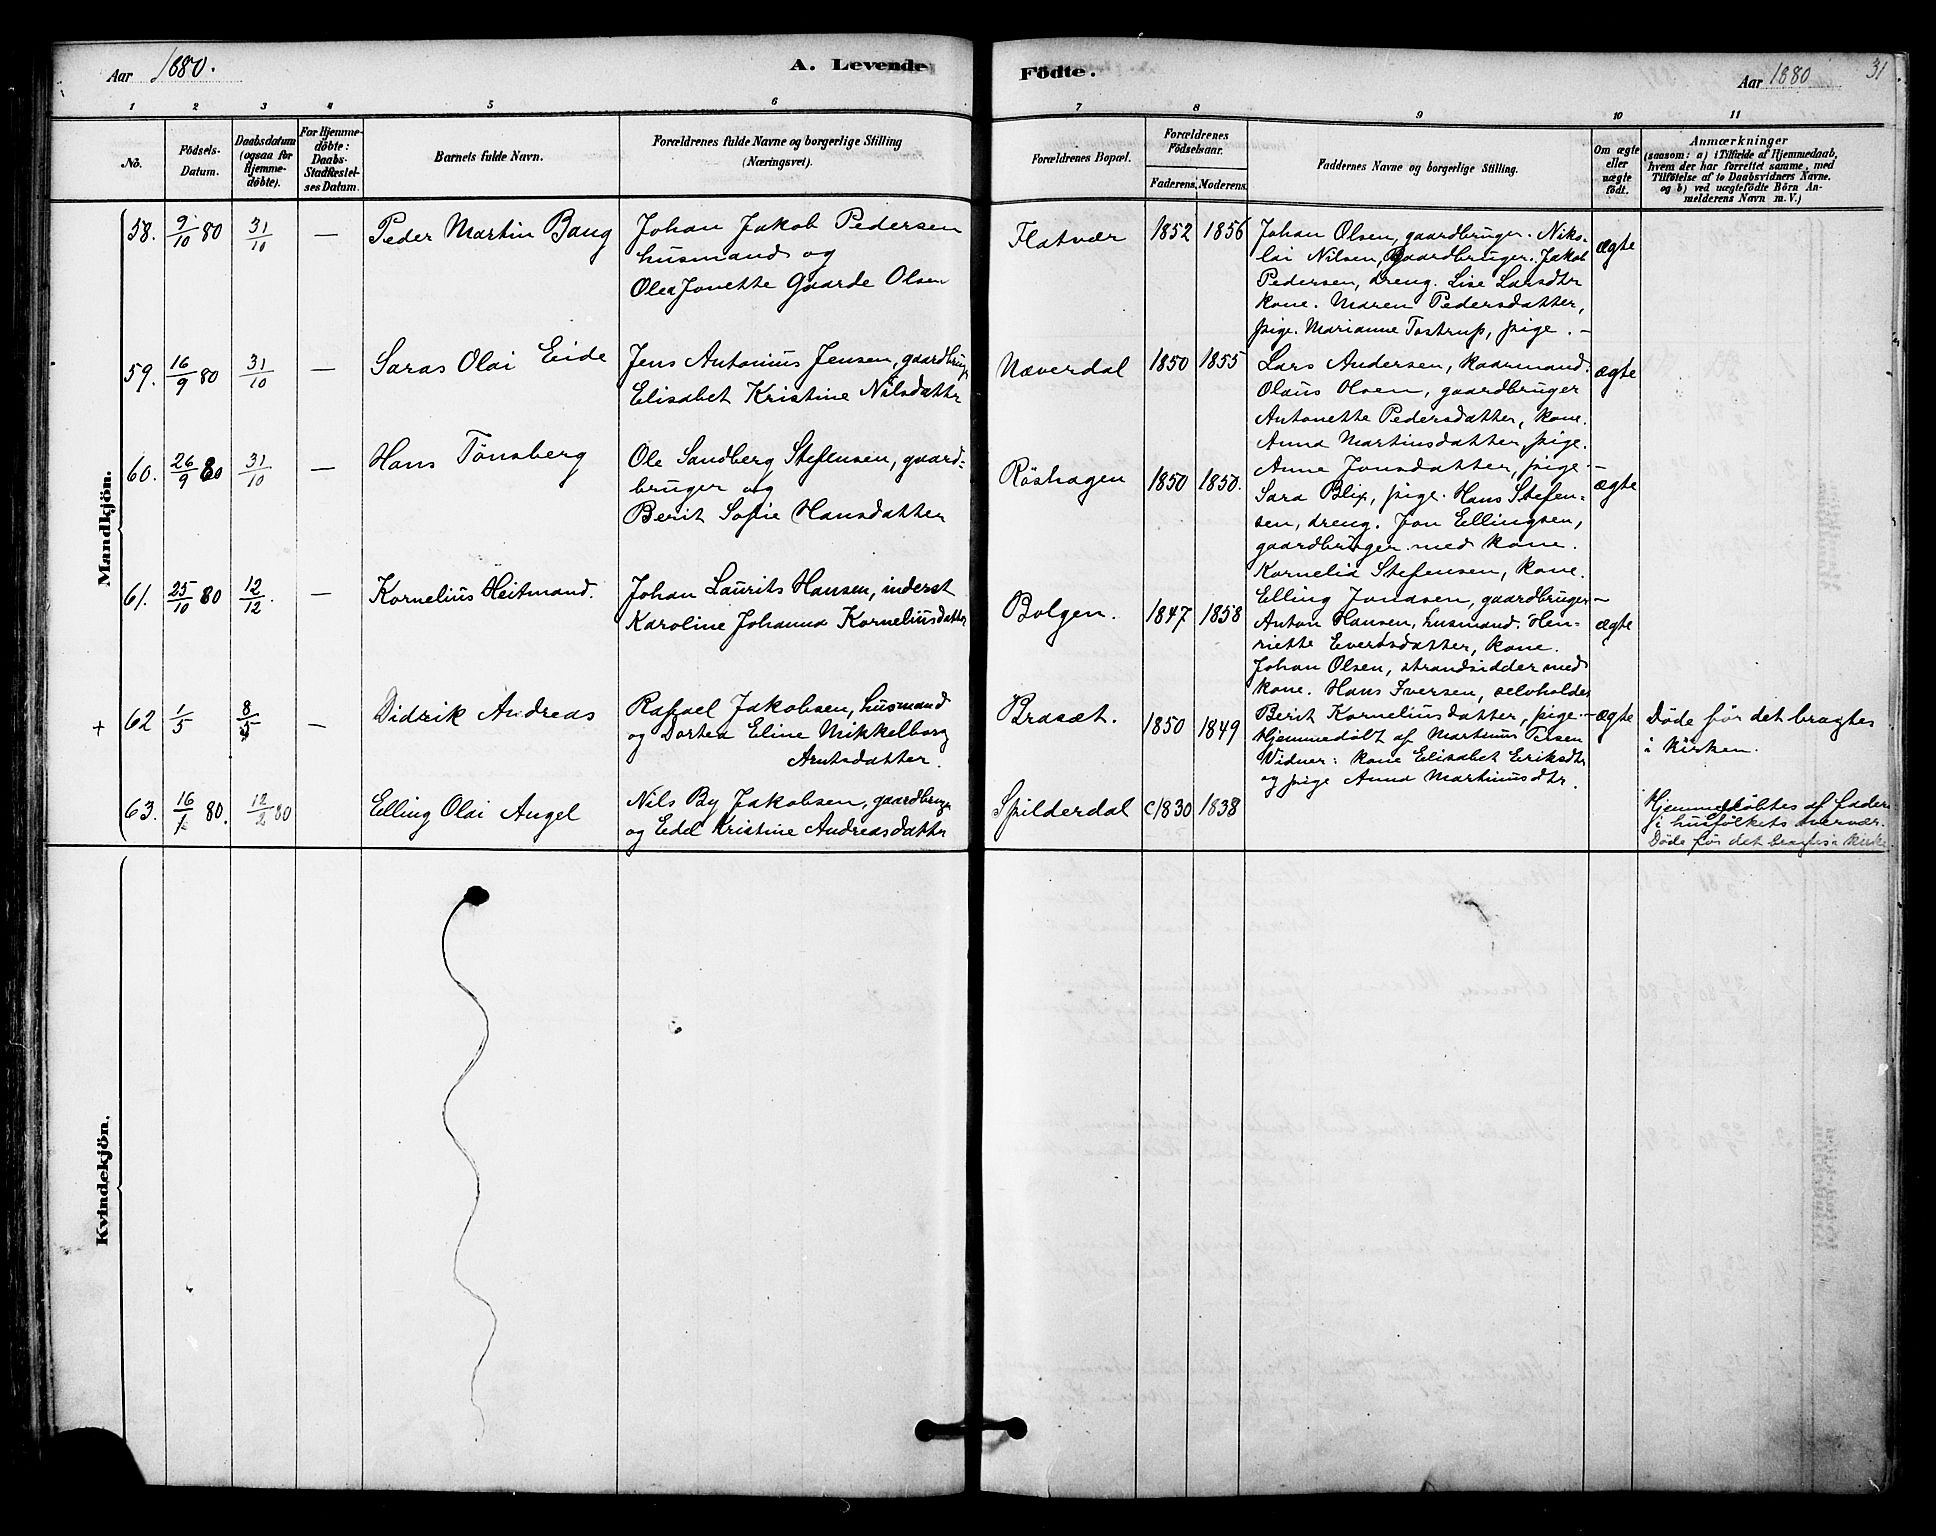 Aar 1880. A. Levende Födte. Aar 1880 31
1 2 3 4 5 6 7 8 9 10 11
No. Födsels-Datum. Daabsdatum (ogsaa for Hjemme-döbte). For Hjemme-döbte: Daabs-Stadfæstel-ses Datum. Barnets fulde Navn. Forældrenes fulde Navne og borgerlige Stilling (Næringsvei). Forældrenes Bopæl. Forældrenes Födselsaar. Faderens. Moderens. Faddernes Navne og borgerlige Stilling. Om ægte eller uægte födt. Anmærkninger
(saasom: a) i Tilfælde af Hjemmedaab,
hvem der har forrettet samme, med
Tilföielse af to Daabsvidners Navne.
og b) ved uægtefödte Börn An-
melderens Navn m.V.)
Mandkjön.
58. 9/10 80 31/10 — Peder Martin Bang
Johan Jakob Pedersen
husmand og
Olea Jonette Gaarde Olsen
Flatvær 1852 1856
Johan Olsen, gaardbruger. Niko-
lai Nilsen, Gaardbruger. Jakob
Pedersen, dreng. Lise Larsdtr
kone. Maren Pedersdatter,
pige. Marianne Tostrup, pige. —
ægte
59. 16/9 80 31/10 — Saras Olai Eide
Jens Antonius Jensen, gaardbruger
Elisabet Kristine Nilsdatter
Næverdal 1850 1855
Lars Andersen, kaarmand.
Olaus Olsen, gaardbruger
Antonette Pedersdatter, kone.
Anna Martinsdatter, pige.
ægte
60. 26/9 80 31/10 — Hans Tönsberg
Ole Sandberg Stefensen, gaard-
bruger og
Berit Sofie Hansdatter
Röshagen 1850 1850.
Anne Jonsdatter, pige. —
Sara Blix, pige. Hans Stefen-
sen, dreng. Jon Ellingsen,
gaardbruger med kone.
Kornelia Stefensen, kone.
ægte
61. 25/10 80 12/12. — Kornelius Heitmand.
Johan Laurits Hansen, inderst
Karoline Johanna Korneliusdatter
Bolgen. 1847 1858
Elling Jonasen, gaardbruger —
Anton Hansen, husmand. Hen-
riette Evertsdatter, kone.
Johan Olsen, strandsidder med
kone. Hans Iversen, selvholder
Berit Korneliusdatter, pige. —
ægte
+ 62 1/5 8/5 — Didrik Andreas
Rafael Jakobsen, husmand
og Dortea Eline Mikkelborg
Arntsdatter.
Brasæt. 1850 1849
Hjemmedøbt af Martinus
Vidner: kone Elisabet Eriksdtr
og pige Anna Martinusdtr.
ægte
Døde før det bragtes
i kirken.
63. 16/1 80. 12/2 80 Elling Olai Angel
Nils By Jakobsen, gaardbruger
og Edel Kristine Andreasdatter
Spilderdal c1830 1838
Hjemmedöbtes af fader
i husfolkets overvær.
Døde før det bragtes i kirke
Kvindekjön.